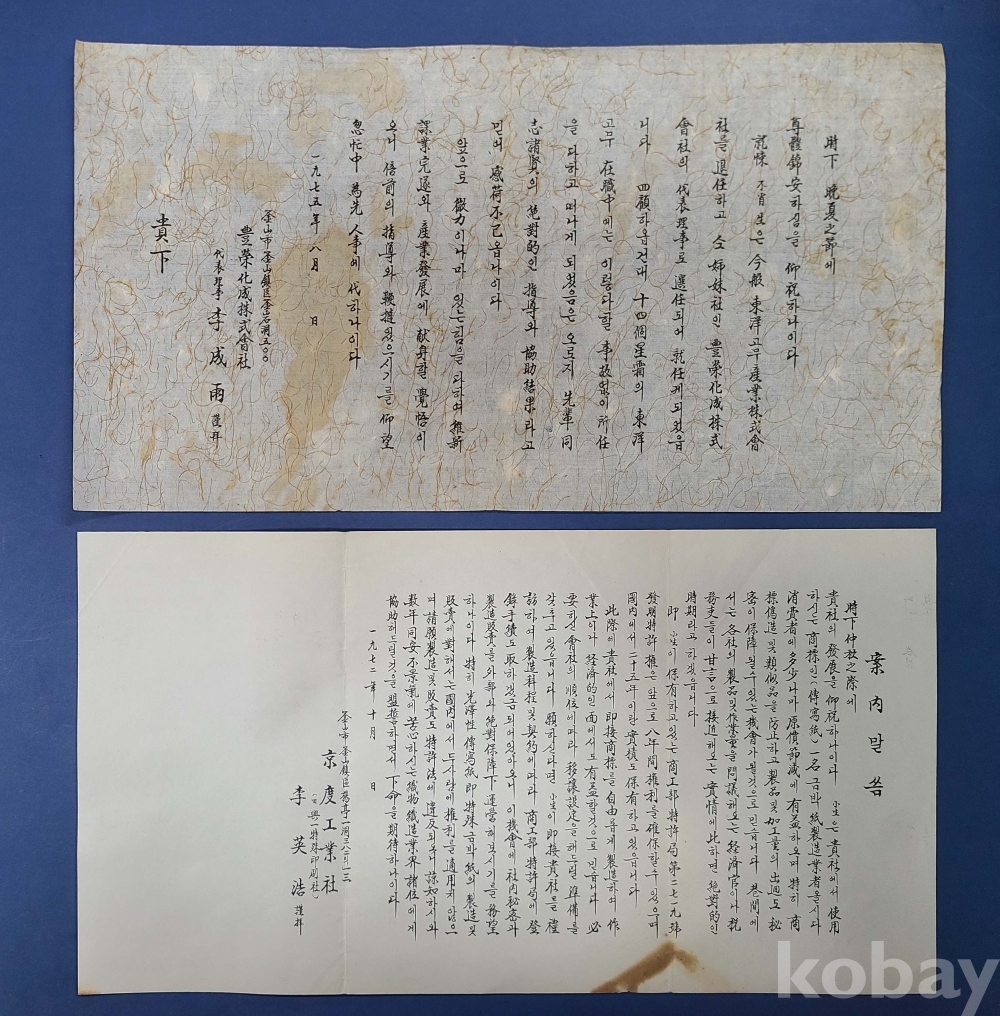 時下 晩夏之節에
尊體錦安하심을 仰祝하나이다
就悚 不肖 生은 今般 東洋고무産業株式會
社를 退任하고 仝 姉妹社인 豊榮化成株式
會社의 代表理事로 選任되어 就任케되었읍
니다 四顧하옵건대 十四個星霜의 東洋
고무 在職中에는 이렇다할 事故없이 所任
을 다하고 떠나게 되었음은 오로지 先輩同
志諸賢의 絶對的인 指導와 協助結果라고
믿어 感荷不已옵나이다
앞으로 微力이나마 있는힘을 다하여 維新
課業完遂와 産業發展에 献身할 覺悟이
오니 倍前의 指導와 鞭撻있으시기를 仰望
忽忙中 為先 人事에 代하나이다
一九七五年 八月 日
釜山市釜山鎮區釜岩洞五○○
豊榮化成株式會社
代表理事 李成雨 謹拜
貴下
案內말씀
時下仲秋之際에
貴社의 發展을 仰祝하나이다 小生은 貴社에서 使用
하신는 商標인(傳寫紙) 一名 금박紙製造業者올시다
消費者에 多少나마 原價節減에 有益하오며 特히 商
標偽造 및 類似品을 防止하고 製品 및 加工量의 出廻도 秘
密이 保障될수있는 機會가 될것으로 믿습니다 巷間에
서는 各社의 製品 및 作業量을 問議해오는 経済官이나 稅
務吏들이 甘言으로 接近해오는 實情에 比하면 絶對的인
時期라고 하겠읍니다
即 小生이 保有하고있는 商工部特許局第二七九號
發明特許權은 앞으로 八年間權利를 確保할수 있으며
國内에서 二十五年이란 實積도 保有하고 있읍니다
此際에 貴社에서 即接商標를 自由롭게 製造하여 作
業上이나 経済的인 面에서도 有益할것으로 믿습니다 必
要하신會社의 順位에따라 移讓設定을 해드릴 準備를
갖추고 있읍니다 願하신다면 小生이 即接貴社를 禮
訪하여 製造科程 및 契約에따라 商工部 特許局에 登
録手續도 取하겠금되어있아오니 이 機會에 社内秘密과
製造販賣를 外部와 絶對保障下 運營해보시기를 務望
하나이다 特히 光澤性 傳寫紙即 特殊금박紙의 製造 및
販賣에 對해서는 國内에서 두사람에 權利를 適用지 않으
며 請願製造 및 販賣도 特許法에 違反되오니 諒知하시와
數年同安 不景氣에 苦心하시는 織物 織造業界 諸位에게
協助해드릴것을 盟誓하면서 下命을 期待하나이다
一九七二年 十月 日
京度工業社
李英浩 謹拜
kobay